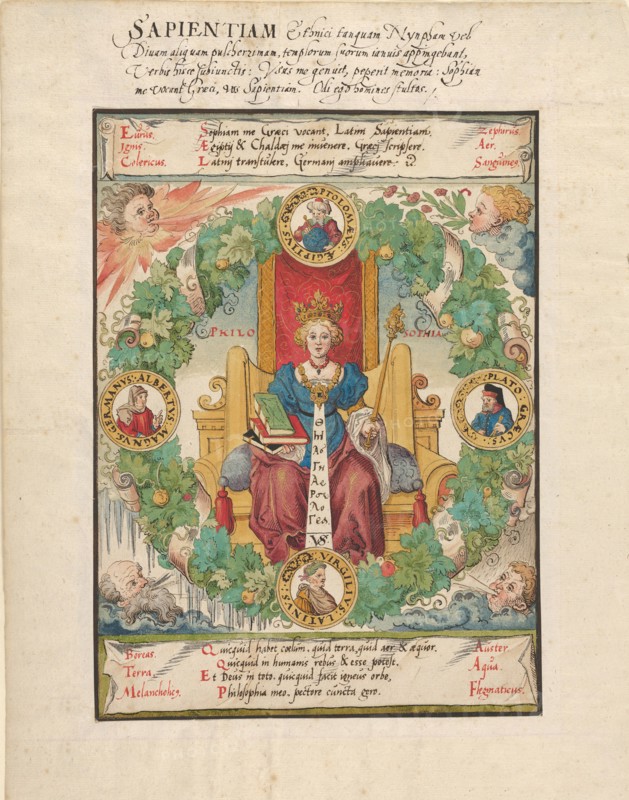 SAPIENTIAM Ethnici tanquam Nympham vel
Divam aliquam pulcherrimam, templorum suorum ianuis appingebant,
Verbis hisce subiunctis: Usus me genuit, peperit memoria: Sophian
me vocant Græci, vos Sapientiam. Odi ego homines stultos.
Eurus. Sophiam me Græci vocant, Latini Sapientiam. Zephirus.
Ignis. Ægiptij & Chaldæj me invenere, Græcj scripsere. Aer.
Colericus. Latinj transtulere, Germani ampliavere. Sanguineus
PTOLOMÆVS ÆGIPTIVS
PHILO SOPHIA
GERMANVS ALBERTVS MAGNVS
PLATO GRÆCVS
VIRGILIVS LATINVS
Boreas. Quicquid habet cœlum, quid terra, quid aer & æquor. Auster.
Terra. Quicquid in humanis rebus & esse potest, Aqua.
Et Deus in toto, quicquid facit igneus orbe,
Melancholicus. Philosophia meo, pectore cuncta gero. Flegmaticus.